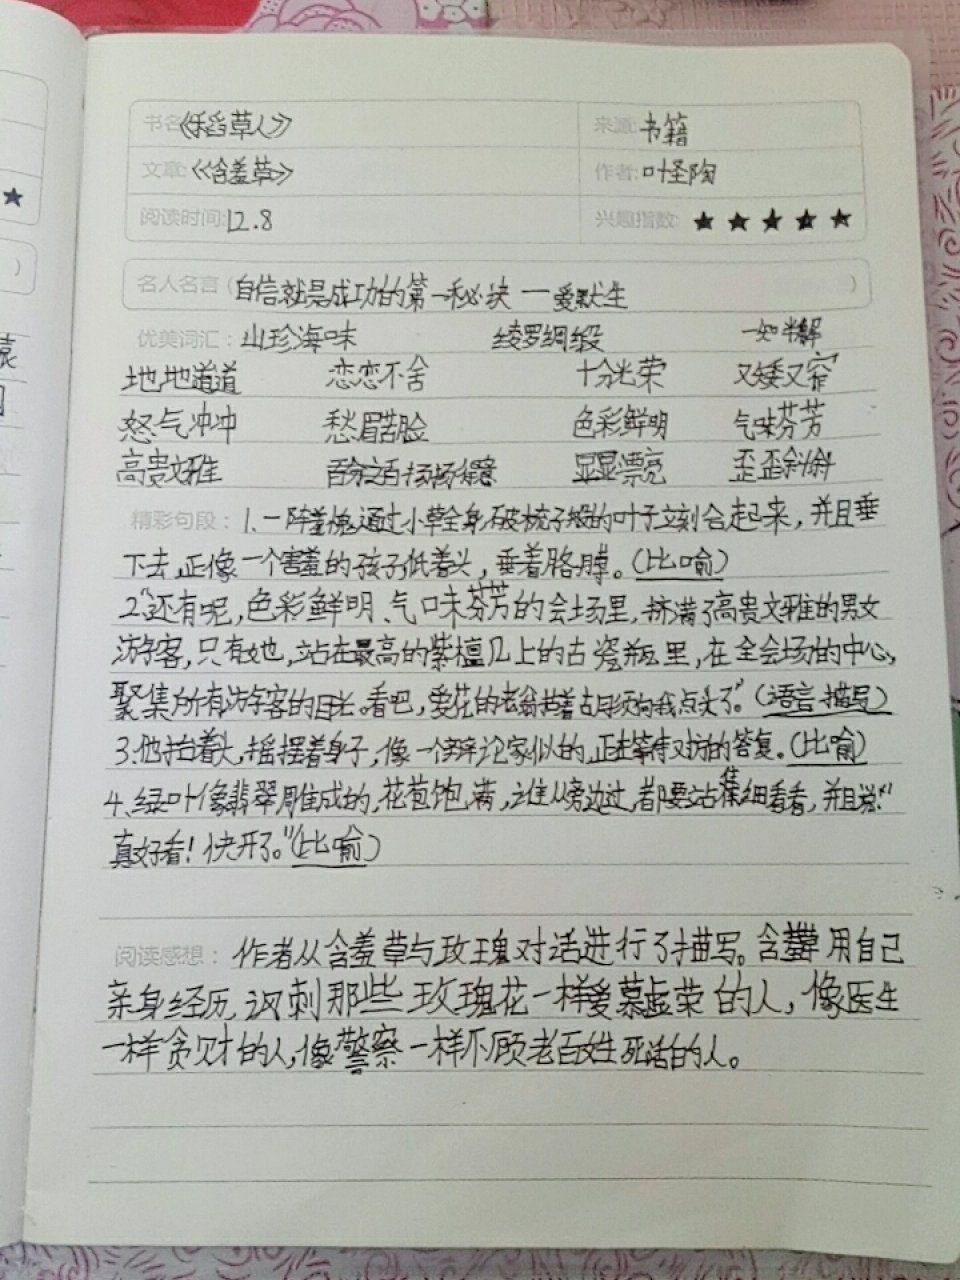 书名:《稻草人》 来源:书籍
文章:《含羞草》 作者:叶圣陶
阅读时间:12.8 兴趣指数:★★★★★
名人名言(自信就是成功的第一秘诀——爱默生)
优美词汇:山珍海味 绫罗绸缎 一知半解
地地道道 恋恋不舍 十分光荣 又矮又窄
怒气冲冲 愁眉苦脸 色彩鲜明 气味芬芳
高贵文雅 百分之百 扬扬得意 显显漂亮 歪歪斜斜
精彩句段:1.一阵羞愧通过小草全身,破梳子般的叶子立刻合起来,并且垂
下去,正像一个害羞的孩子低着头,垂着胳膊。(比喻)
2."还有呢,色彩鲜明、气味芬芳的会场里,挤满了高贵文雅的男女
游客,只有她,站在最高的紫檀几上的古瓷瓶里,在全会场的中心,
聚集所有游客的目光。看吧,爱花的老翁拈着胡须向我点头了。"(语言描写)
3.他抬着头,摇摆着身子,像一个辩论家似的,正在等待对方的答复。(比喻)
4.绿叶像翡翠雕成的,花苞饱满,谁从旁边过,都要站住仔细看看,并且说:"
真好看!快开了。"(比喻)
阅读感想:作者从含羞草与玫瑰对话进行了描写。含羞草用自己
亲身经历,讽刺那些玫瑰花一样爱慕虚荣的人,像医生
一样贪财的人,像警察一样不顾老百姓死活的人。